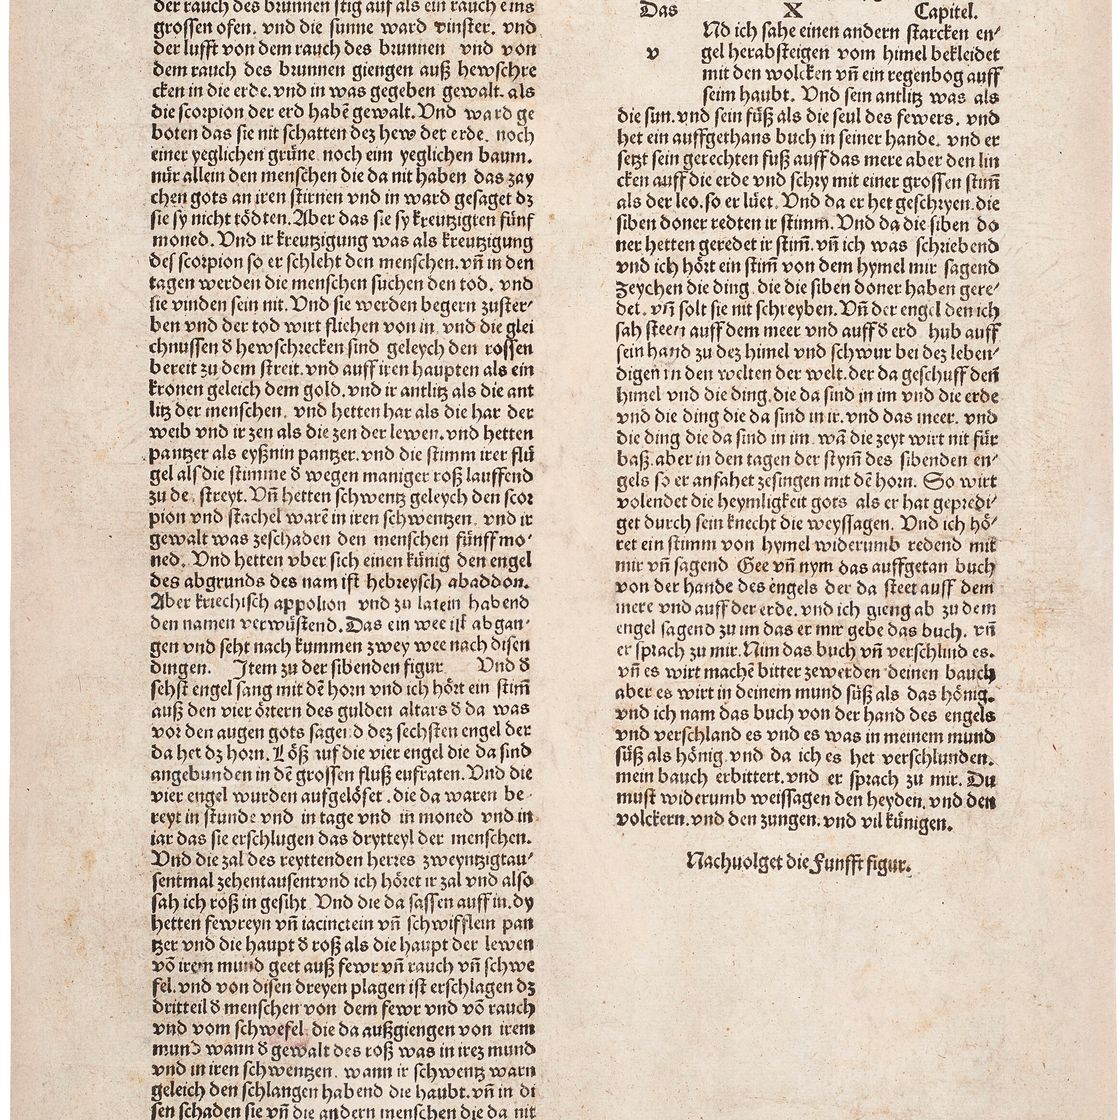 der rauch des brunnen stig auf als ein rauch eins
grossen ofen. vnd die sunne ward vinster. vnd
der lufft von dem rauch des brunnen vnd von
dem rauch des brunnen giengen auß hewschre
cken in die erde. vnd in was gegeben gewalt. als
die scorpion der erd habẽ gewalt. Vnd ward ge
boten das sie nit schatten dez hew der erde. noch
einer yeglichen grüne noch eim yeglichen baum.
nůr allein den menschen die da nit haben das zay
chen gots an iren stirnen vnd in ward gesaget dz
sie sy nicht tödten. Aber das sie sy kreutzigten fünf
moned. Vnd ir kreutzigung was als kreutzigung
des scorpion so er schleht den menschen. vñ in den
tagen werden die menschen suchen den tod. vnd
sie vinden sein nit. Vnd sie werden begern zuster⸗
ben vnd der tod wirt fliehen von in. vnd die glei
chnussen d̕ hewschrecken sind geleych den rossen
bereit zu dem streit. vnd auff iren haupten als ein
kronen geleich dem gold. vnd ir antlitz als die ant
litz der menschen. vnd hetten har als die har der
weib vnd ir zen als die zen der lewen. vnd hetten
pantzer als eyßnin pantzer. vnd die stimm irer flü
gel als die stimme d̕ wegen maniger roß lauffend
zu de streyt. Vñ hetten schwentz geleych den scor
pion vnd stachel warẽ in iren schwentzen. vnd ir
gewalt was zeschaden den menschen fünff mo⸗
ned. Vnd hetten vber sich einen künig den engel
des abgrunds des nam ist hebreysch abaddon.
Aber kriechisch appolion vnd zu latein habend
den namen verwüstend. Das ein wee ist abgan⸗
gen vnd seht nach kummen zwey wee nach disen
dingen. Item zu der sibenden figur Vnd d̕
sehst engel sang mit dẽ horn vnd ich hört ein stim̃
auß den vier örtern des gulden altars d̕ da was
vor den augen gots sagend dez sechsten engel der
da het dz horn. Löß uf die vier engel die da sind
angebunden in dẽ grossen fluß eufraten. Vnd die
vier engel wurden aufgelöset. die da waren be⸗
reyt in stunde vnd in tage vnd in moned vnd in
iar das sie erschlugen das drytteyl der menschen.
Vnd die zal des reyttenden herzes zweyntzigtau⸗
sentmal zehentausent vnd ich höret ir zal vnd also
sah ich röß in gesiht. Vnd die da sassen auff in. dy
hetten fewreyn vñ iacinctein vñ schwifflein pan
tzer vnd die haupt d̕ roß als die haupt der lewen
võ irem mund geet auß fewr vñ rauch vñ schwe
fel. vnd von disen dreyen plagen ist erschlagen dz
dritteil d̕ menschen von dem fewr vnd võ rauch
vnd vom schwefel die da außgiengen von irem
mund wann d̕ gewalt des roß was in irez mund
vnd in iren schwentzen. wann ir schwentz warn
geleich den schlangen habend die haubt. vñ in di
sen schaden sie vñ die andern menschen die da nit
Das X Capitel.
v
Nd ich sahe einen andern starcken en⸗
gel herabsteigen vom himel bekleidet
mit den wolcken vñ ein regenbog auff
seim haubt. Vnd sein antlitz was als
die sun. vnd sein füß als die seul des fewers. vnd
het ein auffgethans buch in seiner hande. vnd er
setzt sein gerechten fuß auff das mere aber den lin
cken auff die erde vnd schry mit einer grossen stim̃
als der leo. so er lüet. Vnd da er het geschryen. die
siben doner redten ir stimm. Vnd da die siben do
ner hetten geredet ir stim̃. vñ ich was schriebend
vnd ich hört ein stim̃ von dem hymel mir sagend
Zeychen die ding. die die siben doner haben gere⸗
det. vñ solt sie nit schreyben. Vñ der engel den ich
sah steen auff dem meer vnd auff d̕ erd hub auff
sein hand zu dez himel vnd schwur bei dez leben⸗
digen in den welten der welt. der da geschuff deñ
himel vnd die ding. die da sind in im vnd die erde
vnd die ding die da sind in ir. vnd das meer. vnd
die ding die da sind in im. wã die zeyt wirt nit für
baß. aber in den tagen der stym̃ des sibenden en⸗
gels so er anfahet zesingen mit dẽ horn. So wirt
volendet die heymligkeit gots als er hat gepredi⸗
get durch sein knecht die weyssagen. Vnd ich hö⸗
ret ein stimm von hymel widerumb redend mit
mir vñ sagend Gee vñ nym das auffgetan buch
von der hande des engels der da steet auff dem
mere vnd auff der erde. vnd ich gieng ab zu dem
engel sagend zu im das er mir gebe das buch. vñ
er sprach zu mir. Nim das buch vñ verschlind es.
vñ es wirt machẽ bitter zewerden deinen bauch
aber es wirt in deinem mund süß als das hönig.
vnd ich nam das buch von der hand des engels
vnd verschland es vnd es was in meinem mund
süß als hönig. vnd da ich es het verschlunden.
mein bauch erbittert. vnd er sprach zu mir. Du
must widerumb weissagen den heyden. vnd den
volckern. vnd den zungen. vnd vil künigen.
Nachuolget die Funfft figur.